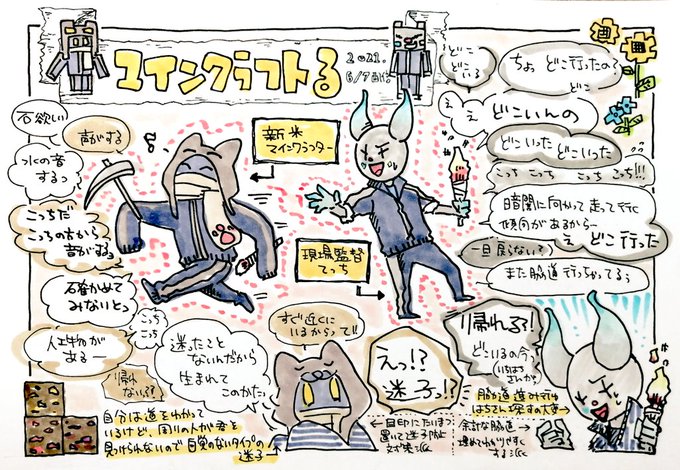 ユインクラフトる
2021.
6/7配信
画
画
石欲しい
声がする
つルの音
するっ
こっちだ
こっちの方から
音がするっ
石番かめて
みないとっ
人工物が
あるー
こっち
こっち
帰れ
ない!?
迷ったこと
ないんだから
生まれて
このかた。
すぐ近くに
いるからって!!
新米
マインクラフター
現場監督
てっち
どこ
どこ
どこ
いる
ちょ どこ行ったの
どこ
え
え
どこいんの
どこいった どこいった
こっち こっち こっち こっち!!!
暗闇に向かって走って行く
傾向があるからー
え
どこ行った
一旦戻らない?
また脇道行っちゃってるぅ
えっ!?
迷子っ!?
帰れるろ!
どこいるの今っ
いちはち
さんがっ
自分は道をわかって
いるけど、周りの人が君を
見つけられないので自覚のないタイプの
迷子
目印にたいまつ
置いて迷子防止
対策派
余計な脇道
埋めてわかりやすく
する派